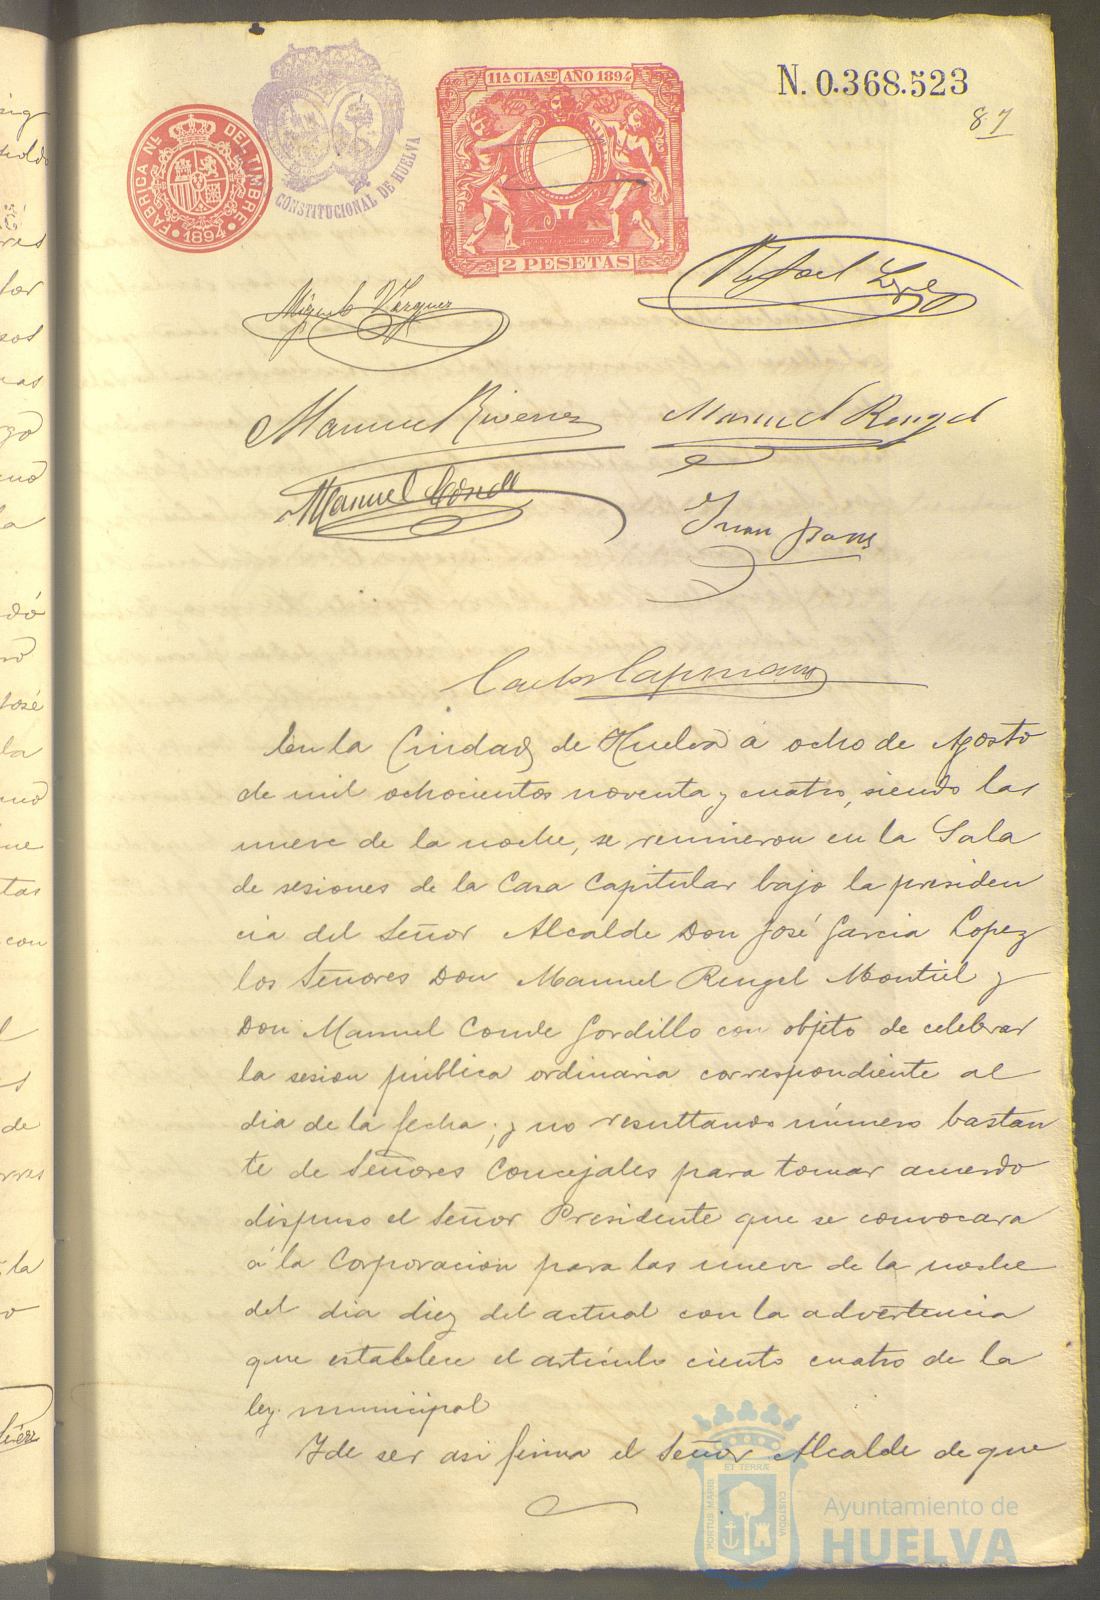 N. 0.368.523
87
11ª CLASE AÑO 1894
FABRICA NL. DEL TIMBRE
1894
CONSTITUCIONAL DE HUELVA
2 PESETAS
Miguel Vazquez
Rafael Lopez
Manuel Rengel
Manuel Conde
Juan
En la Ciudad de Huelva á ocho de Agosto
de mil ochocientos noventa y cuatro, siendo las
nueve de la noche, se reunieron en la Sala
de sesiones de la Casa Capitular bajo la presiden
cia del Señor Alcalde Don José Garcia Lopez
los Señores Don Manuel Rengel Montiel y
Don Manuel Conde Gordillo con objeto de celebrar
la sesion pública ordinaria correspondiente al
dia de la fecha; y no resultando número bastan
te de Señores Concejales para tomar acuerdo
dispuso el Señor Presidente que se convocara
á la Corporacion para las nueve de la noche
del dia diez del actual con la advertencia
que establece el articulo ciento cuatro de la
ley municipal
Y de ser asi firma el Señor Alcalde de que
PORTUS MARIS ET TERRÆ CUSTODIA
Ayuntamiento de
HUELVA